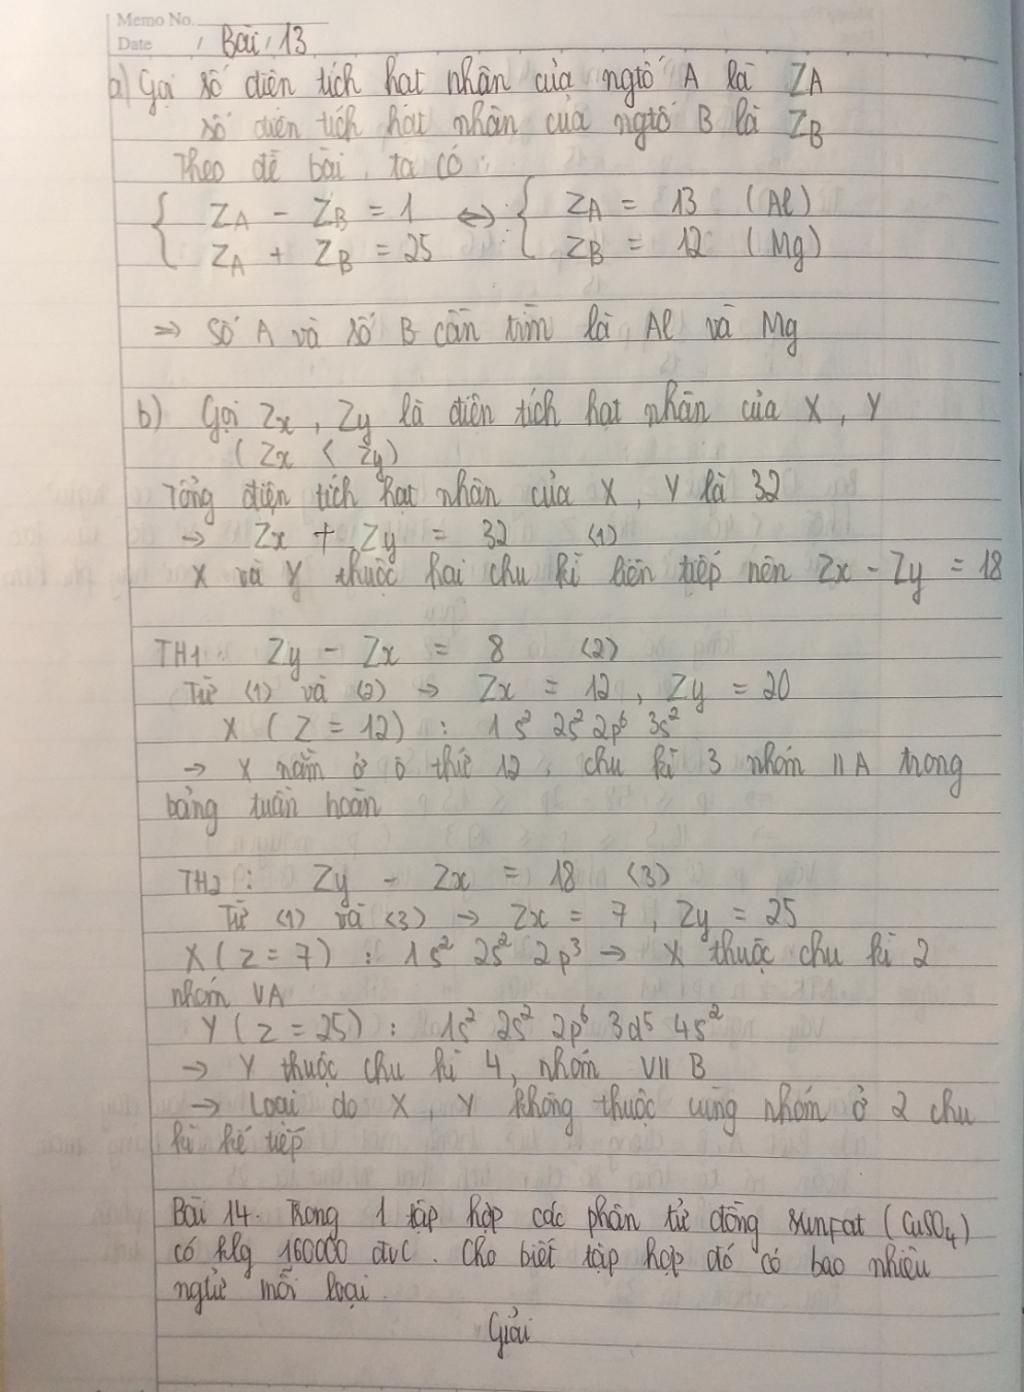 Memo No.
Date / Bài / 13
a) Gọi số điện tích hạt nhân của ngtố A là ZA
số điện tích hạt nhân của ngtố B là ZB
Theo đề bài, ta có:
{ ZA - ZB = 1 <=> { ZA = 13 (Al)
ZA + ZB = 25 ZB = 12 (Mg)
=> Số A và số B cần tìm là Al và Mg
b) Gọi Zx, Zy là điện tích hạt nhân của X, Y
(Zx < Zy)
Tổng điện tích hạt nhân của X, Y là 32
→ Zx + Zy = 32 (1)
X và Y thuộc hai chu kì liên tiếp nên Zx - Zy = 18
TH1: Zy - Zx = 8 (2)
Từ (1) và (2) → Zx = 12, Zy = 20
X (Z = 12) : 1s² 2s² 2p⁶ 3s²
→ X nằm ở ô thứ 12, chu kì 3 nhóm IIA trong
bảng tuần hoàn
TH2: Zy - Zx = 18 (3)
Từ (1) và (3) → Zx = 7, Zy = 25
X (Z = 7) : 1s² 2s² 2p³ → X thuộc chu kì 2
nhóm VA
Y (Z = 25) : 1s² 2s² 2p⁶ 3d⁵ 4s²
→ Y thuộc chu kì 4, nhóm VII B
→ Loại do X, Y không thuộc cùng nhóm ở 2 chu
kì kế tiếp
Bài 14. Trong 1 tập hợp các phân tử đồng sunfat (CuSO₄)
có klg 160000 đvC. Cho biết tập hợp đó có bao nhiêu
ngtử mỗi loại.
Giải